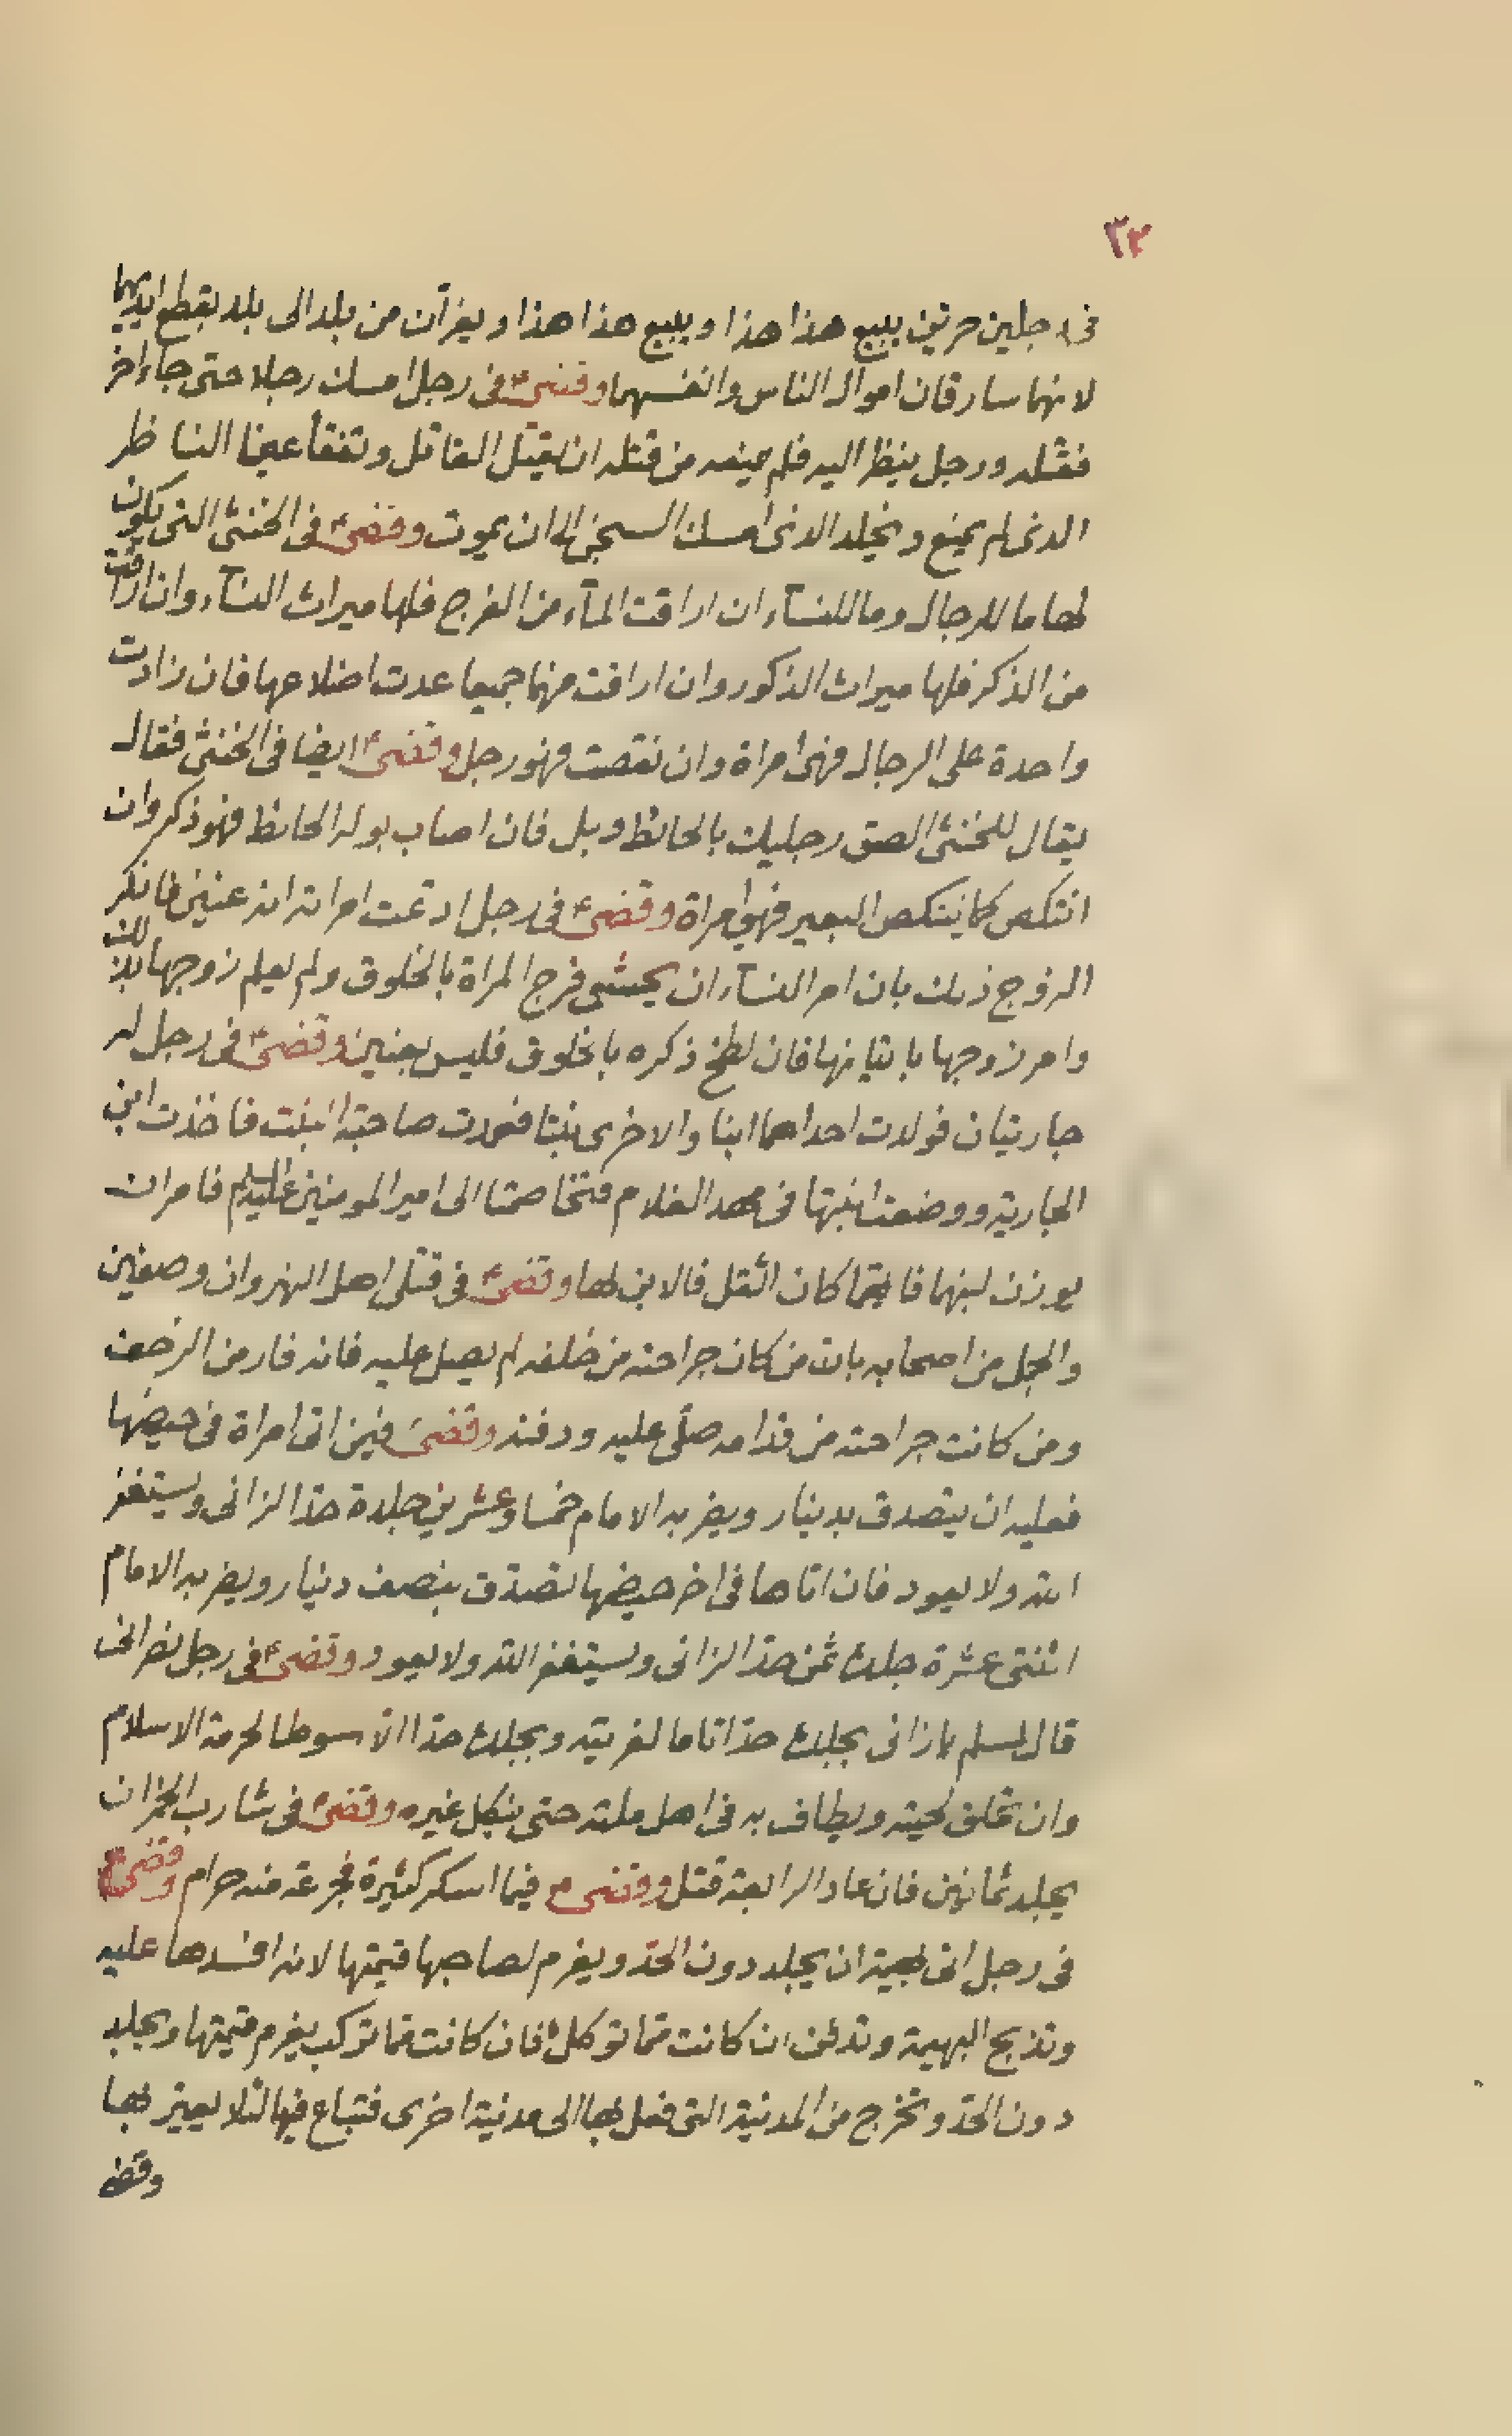 ٣٢
فى رجلين حرين يبيع هذا هذا ويبيع هذا هذا ويفرّان من بلد الى بلد بقطع ايديهما
لانهما سارقان اموال الناس وانفسهما وقضىٰ ع فى رجل امسك رجلا حتى جاء اخر
فقتله ورجل ينظر اليه فلم يمنعه من قتله ان يقتل القاتل وتفقأ عينا الناظر
الذى لم يمنع ويخلد الذى امسك السجن الى ان يموت وقضى ع فى الخنثى التى يكون
لها ما للرجال وما للنسآء ان اراقت المآء من الفرج فلها ميراث النسآء وان اراقت
من الذكر فلها ميراث الذكور وان اراقت منهما جميعا عدت اضلاعها فان زادت
واحدة على الرجال فهى امراة وان نقصت فهو رجل وقضى ع ايضا فى الخنثى فقال
يقال للخنثى الصق رجليك بالحائط وبل فان اصاب بوله الحائط فهو ذكر وان
انتكص كما ينتكص البعير فهى امراة وقضى ع فى رجل ادعت امراته انه عنين فانكر
الزوج ذلك بان امر النسآء ان يحشى فرج المراة بالخلوق ولم يعلم زوجها بذلك
وامر زوجها باتيانها فان لطخ ذكره بالخلوق فليس بعنين وقضى ع فى رجل له
جاريتان فولدت احداهما ابنا والاخرى بنتا فعمدت صاحبة البنت فاخذت ابن
الجارية ووضعت ابنتها فى مهد الغلام فتخاصمتا الى امير المومنين عليه السلم فامر ان
يوزن لبنهما فايتهما كان اثقل فالابن لها وقضى ع فى قتلى اهل النهروان وصفين
والجمل من اصحابه بانه من كان جراحته من خلفه لم يصل عليه فانه فار من الزحف
ومن كانت جراحته من قدامه صلّى عليه ودفنه وقضى ع فيمن اتى امراة فى حيضها
فعليه ان يتصدق بدينار ويضربه الامام خمسا وعشرين جلدة حدّ الزانى ويستغفر
الله ولا يعود فان اتاها فى اخر حيضها تصدّق بنصف دينار ويضربه الامام
اثنتى عشرة جلدة ثمن حدّ الزانى ويستغفر الله ولا يعود وقضى ع فى رجل نصرانى
قال لمسلم يا زانى يجلد حدّا تاما لفريته ويجلد حدّا الّا سوطا لحرمة الاسلام
وان تحلق لحيته ويطاف به فى اهل ملته حتى ينكل غيره وقضى ع فى شارب الخمر ان
يجلد ثمانين فان عاد الرابعة قتل وقضى ع فيما اسكر كثيرة فجرعة منه حرام وقضى ع
فى رجل اتى بهيمة ان يجلد دون الحدّ ويغرم لصاحبها قيمتها لانه افسدها عليه
وتذبح البهيمة وتدفن ان كانت مما توكل فان كانت مما تركب يغرم قيمتها ويجلد
دون الحدّ وتخرج من المدينة التى فعل بها الى مدينة اخرى فتباع فيها لئلا يعير بها
وقضى